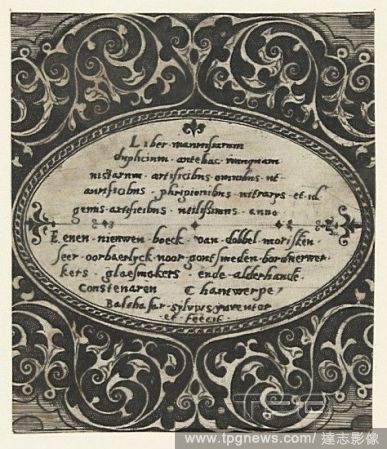 Liber mauresiarum
duplicium antehac nunquam
vistarum artificibus omnibus ut
aurificibus phrigionibus vitrarys et id
genus artificibus utilissimus anno
Eenen niewen boeck van dobbel morisken
seer oorbaerlyck voor gontsmeden borduerwer
kers glaesmakers ende alderhande
Constenaren Thantwerpe
Balthasar sylvius inventor
et fecit
www.tpgnews.com/ 達志影像